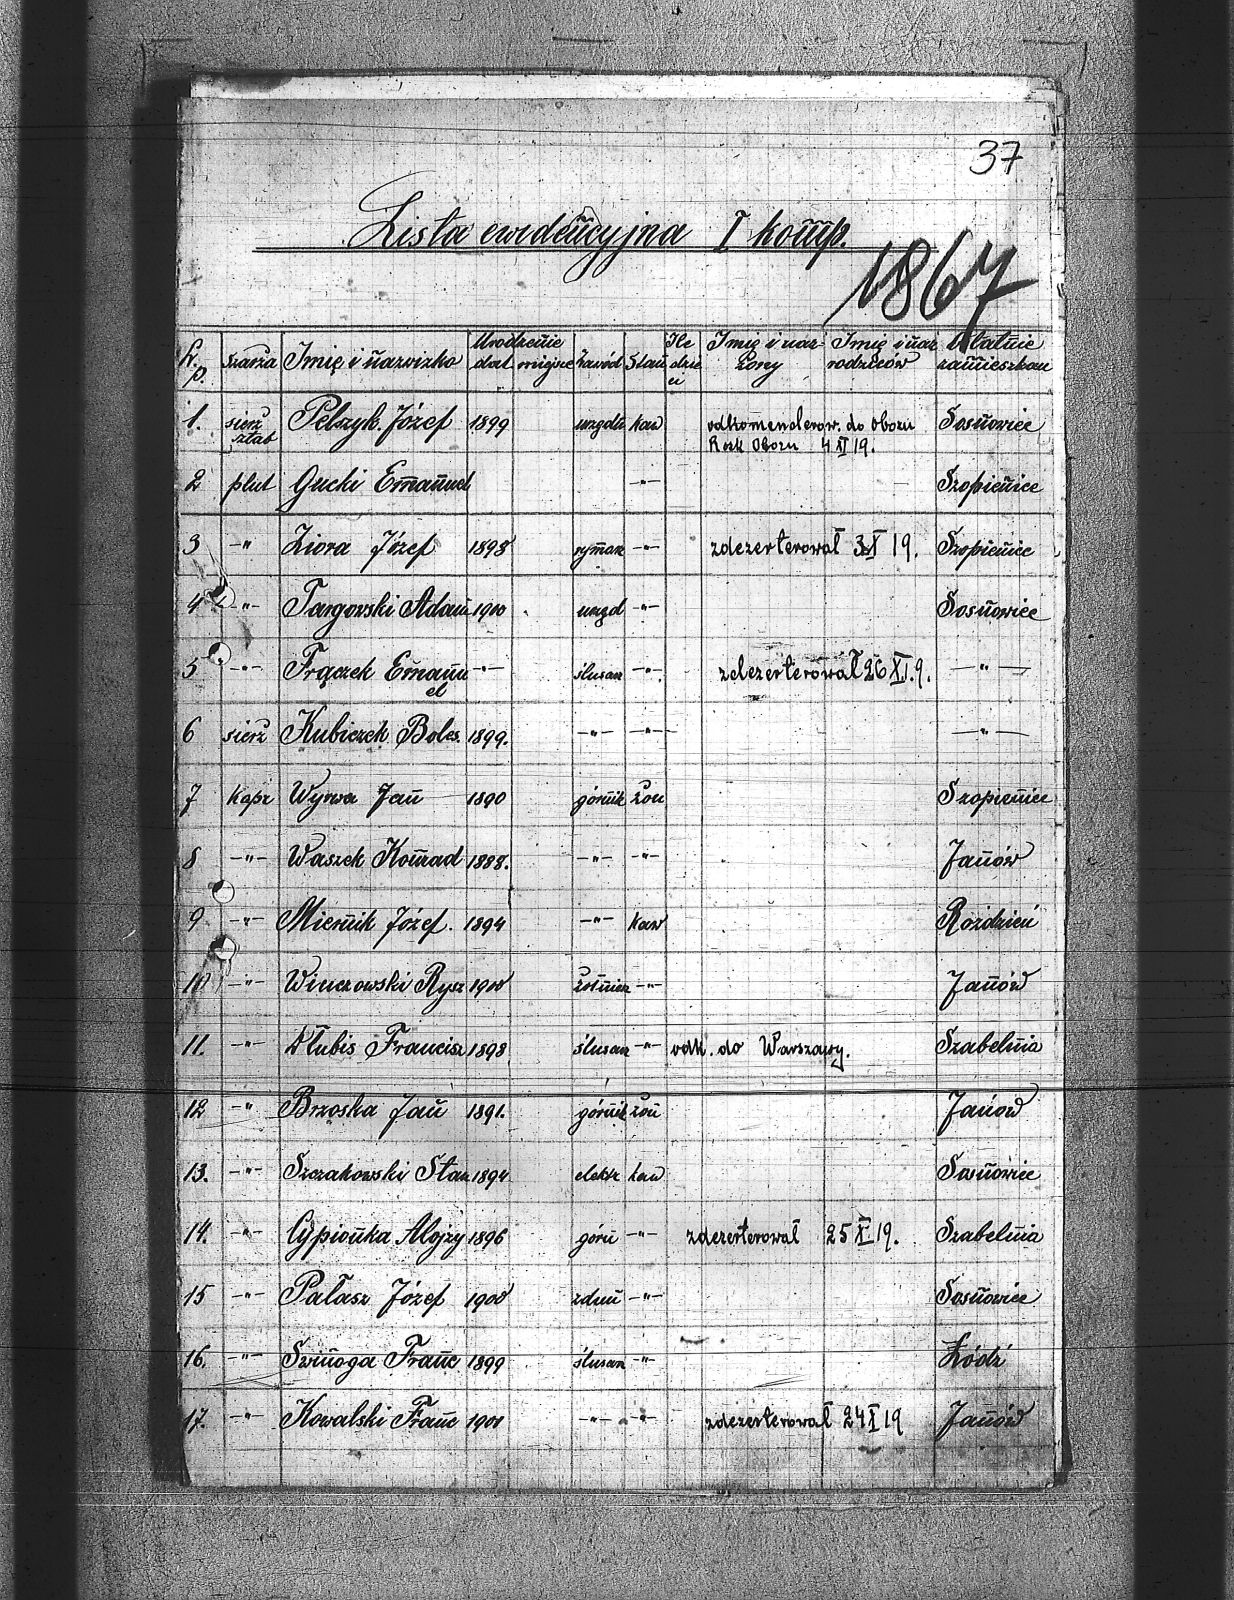 37
Lista ewidencyjna I komp.
1867
L. p. Szarża Imię i nazwizko Urodzenie dat miejsce Zawód Stan Ile dzieci Imię i naz żony Imię i naz rodziców Ostatnie zamieszkan
1. sierż sztab Pelszyk Józef 1899 urzędn kaw odkomenderow. do obozu Sosnowiec
Rozk Obozu 4 XI 19.
2 plut Gucki Emanuel -"- Szopienice
3 -"- Ziora Józef 1898 rymarz -"- zdezerterował 3 XI 19. Szopienice
4 -"- Targowski Adam 1900 urzęd -"- Sosnowiec
5 -"- Frączek Emanuel -"- ślusarz -"- zdezerterował 26 XI.9. -"-
6 sierż Kubiczek Boles. 1899. -"- -"- -"-
7 Kapr Wyrwa Jan 1890 górnik żon Szopienice
8 -"- Waszek Konrad 1888. -"- -"- Janów
9 -"- Miernik Józef. 1894 -"- kaw Roździeń
10 -"- Winczowski Rysz 1900 żołnierz -"- Janów
11. -"- Dłubis Francisz 1898 ślusarz -"- odk. do Warszawy. Szabelnia
12 -"- Brzoska Jan 1891. górnik żon Janow
13. -"- Szczakowski Stan 1894 elektr kaw Sosnowiec
14. -"- Cypionka Alojzy 1896 górn -"- zdezerterował 25 X 19. Szabelnia
15 -"- Pałasz Józef 1900 zdun -"- Sosnowiec
16. -"- Swinoga Franc 1899 ślusarz -"- Łódź
17. -"- Kowalski Franc 1901 -"- -"- zdezerterował 24 X 19 Janów